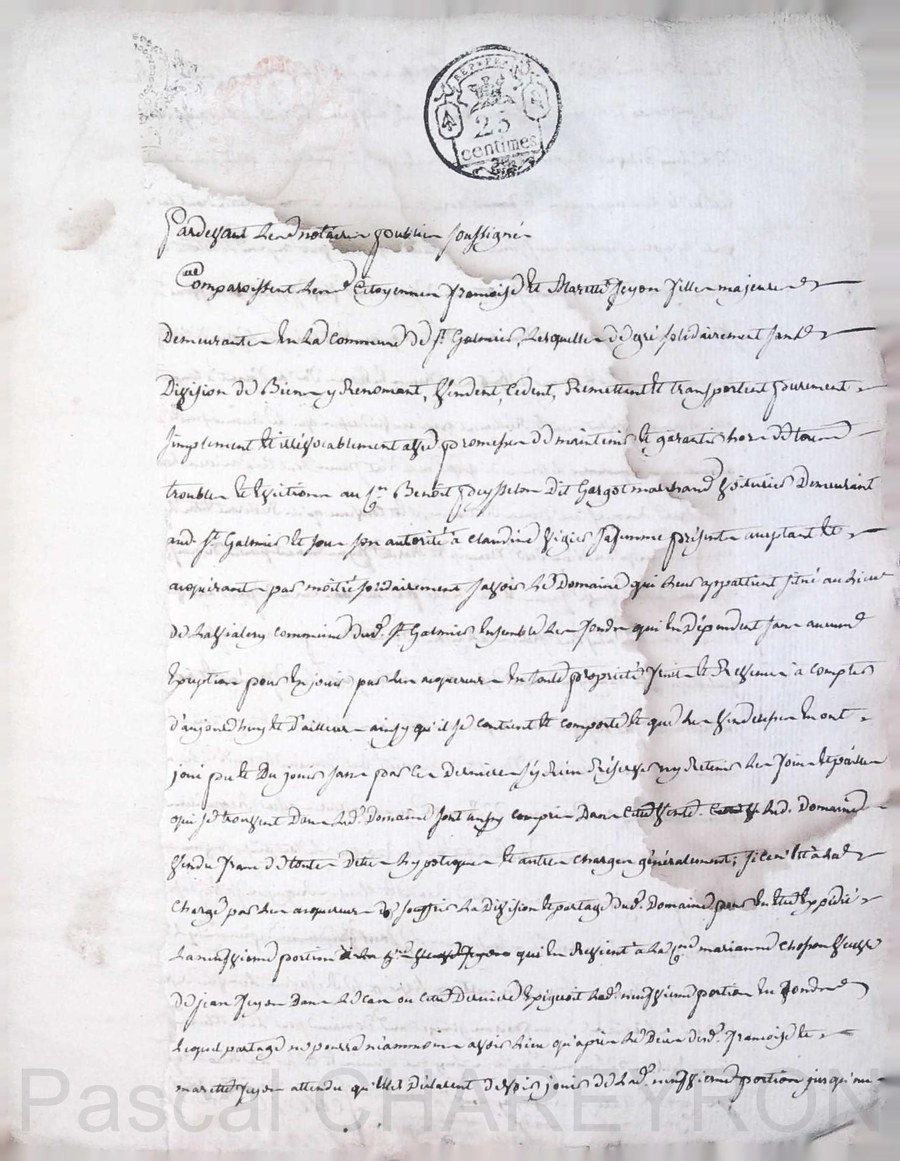 REP. FRA.
25
centimes
Pardevant Les notaires publics soussignés
Comparoissent Les Citoyennes francoise et Mariette Jeyon filles majeures
Demeurante En La Commune de St. Galmier, Lesquelles de gré solidairement sans
Division de Biens y Renoncant, Vendent, Cedent, Remettent et transportent purement
simplement et irrévocablement avec promesse de maintenir et garantir hors de tous
troubles et Evictions au Cen. Benoit Peysselon Dit Gargot marchand Voiturier Demeurant
aud. St. Galmier et sous son autorité a claudine Vigier sa femme présents acceptant et
acquérant par moitié solidairement savoir Le Domaine qui Leur appartient situé au Lieu
de commune dud. St. Galmier Ensemble Les fonds qui En Dépendent sans aucune
Exception pour En jouir par Les acquereurs En toute propriété fruits et Revenus a compter
d'aujourd'huy et d'ailleurs ainsy qu'il se contient et comporte et que Les venderesses En ont
joui pu et Du jouir sans par Ces Dernieres s'y Rien Réserver ny Retenir Les foins et pailles
qui se trouvent Dans Led. Domaine sont aussy compris Dans Led. Domaine
Vendu franc de toutes Dettes hypoteques et autres charges généralement; si ce n'est à La
charge par Les acquereurs de souffrir La Division et partage dud. Domaine pour En être Expédié
La neuvieme portion qui En Revient à La Cne. marianne chosson Veuve
de jean Jeyon Dans Le Cas ou Cette Derniere Exigeroit Lad. neuvieme portion En fonds
Lequel partage ne pourra néanmoins avoir Lieu qu'après Le Décès desd. francoise et
mariette Jeyon attendu qu'Elles Déclarent devoir jouir de Lad. neuvieme portion jusqu'au
Pascal CHAREYRON